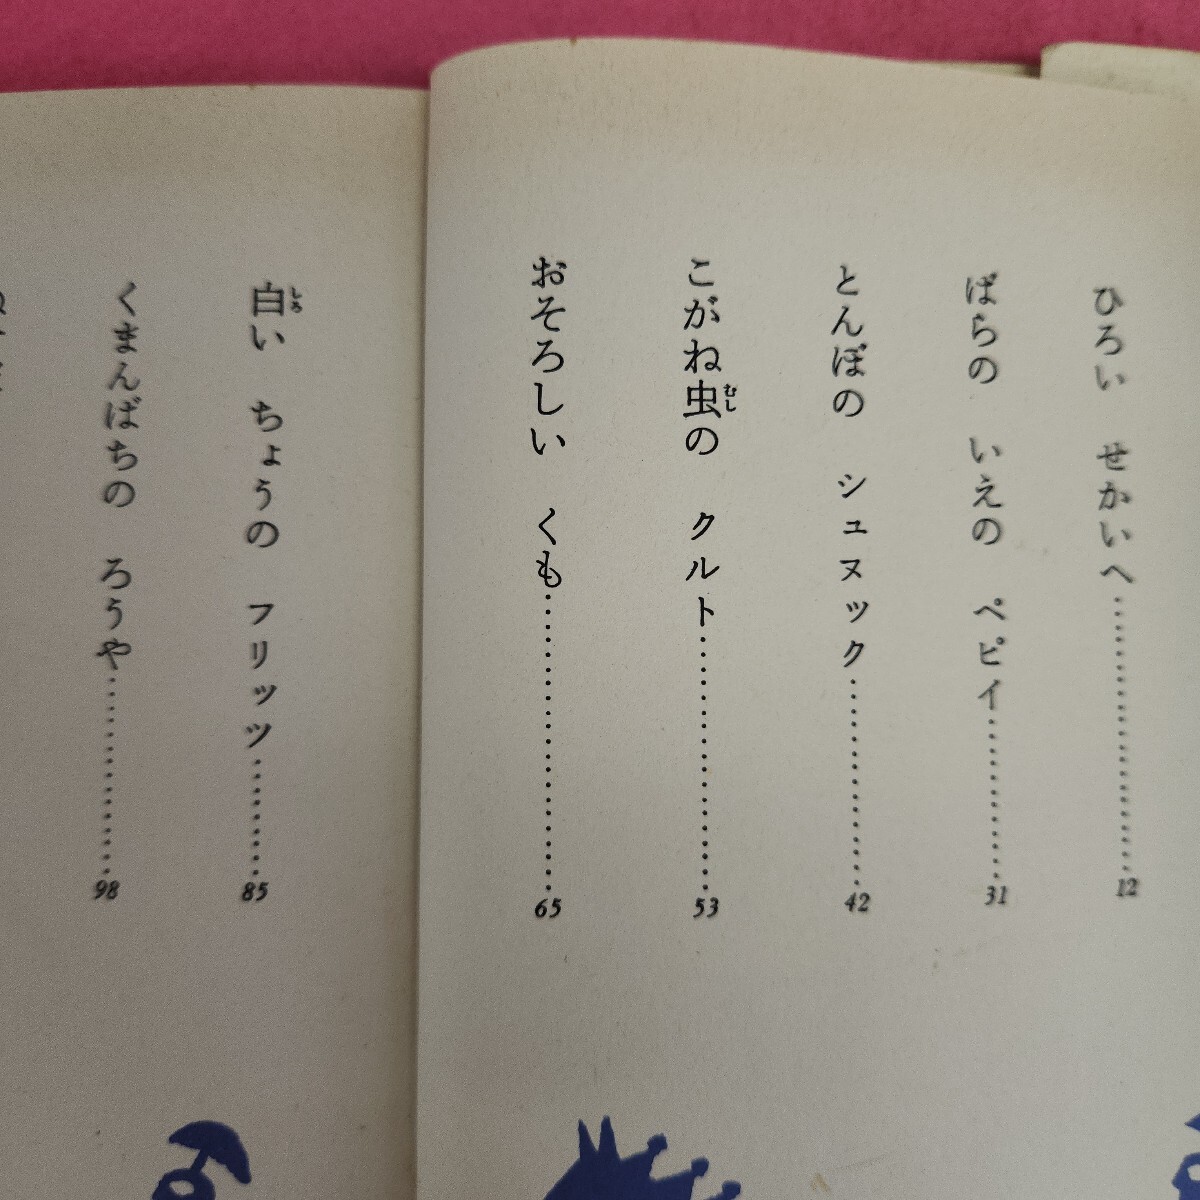 ひろい せかいへ……………………12
ばらの いえの ペピイ……………31
とんぼの シュヌック………………42
こがね虫の クルト…………………53
おそろしい くも……………………65
白い ちょうの フリッツ…………85
くまんばちの ろうや………………98